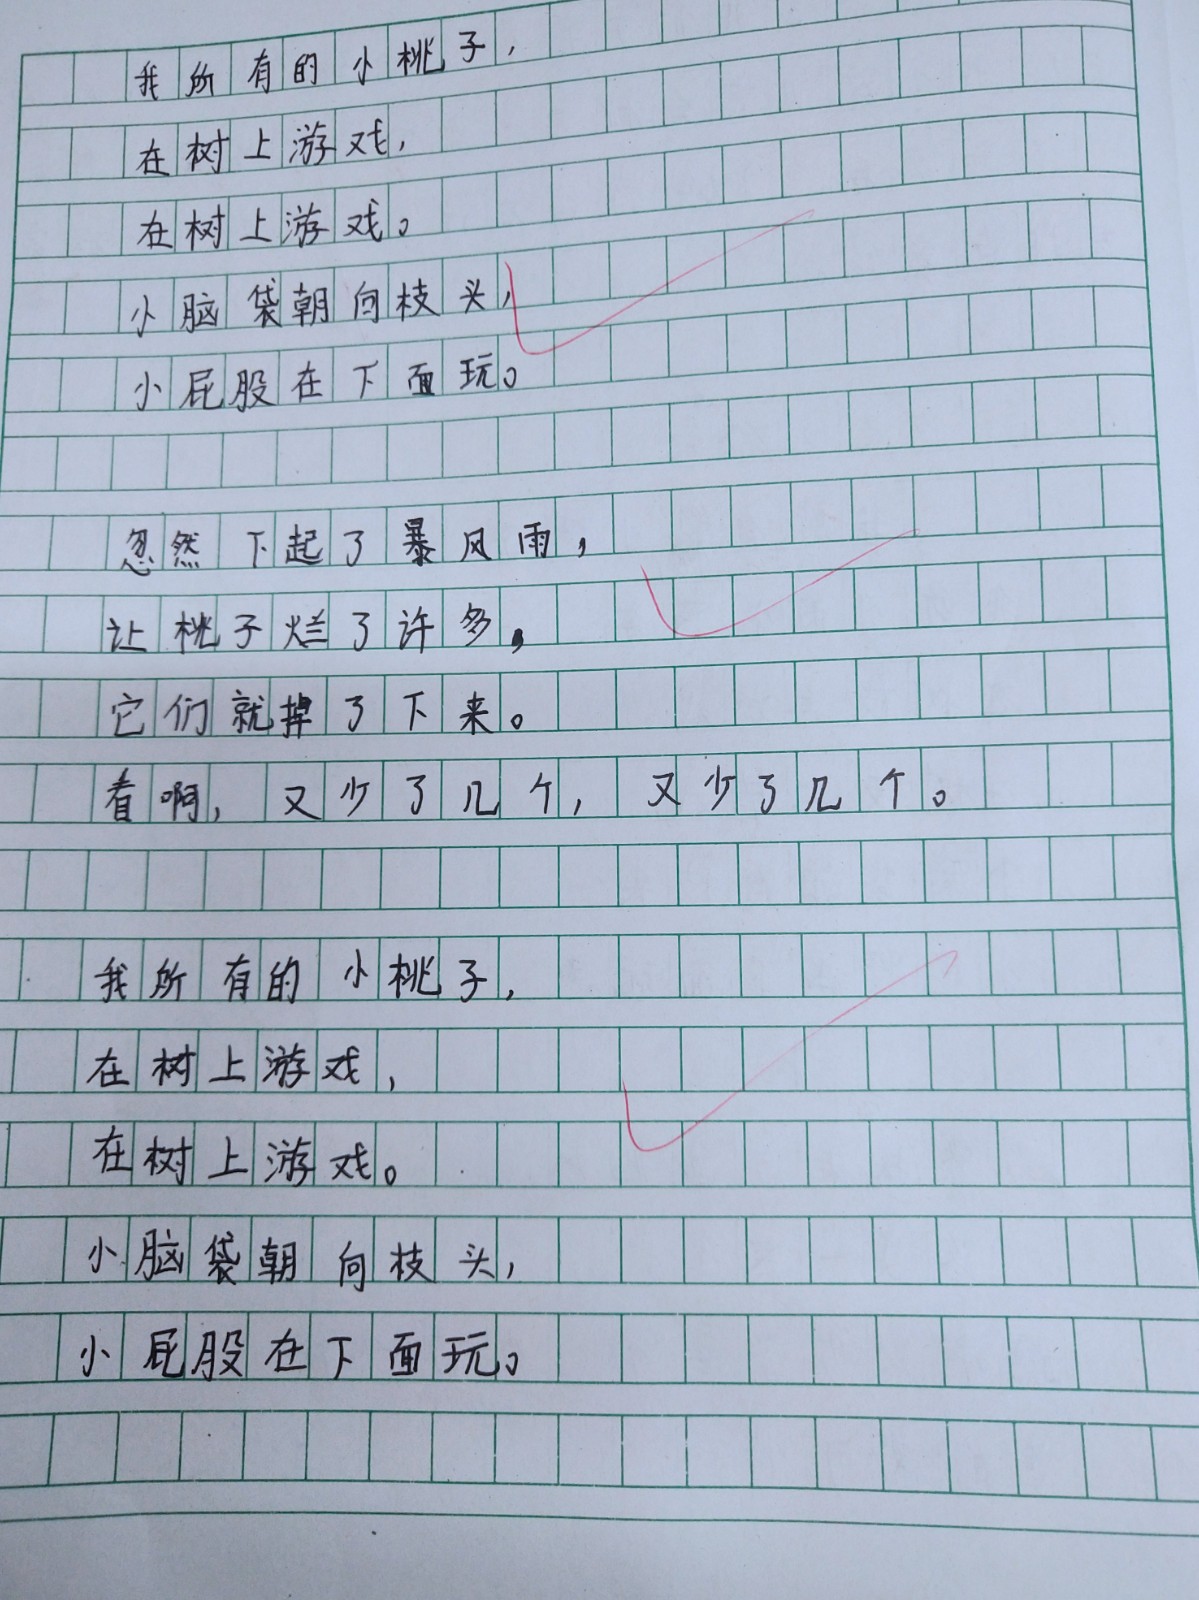 我所有的小桃子，
在树上游戏，
在树上游戏。
小脑袋朝向枝头，
小屁股在下面玩。
忽然下起了暴风雨，
让桃子烂了许多，
它们就掉了下来。
看啊，又少了几个，又少了几个。
我所有的小桃子，
在树上游戏，
在树上游戏。
小脑袋朝向枝头，
小屁股在下面玩。